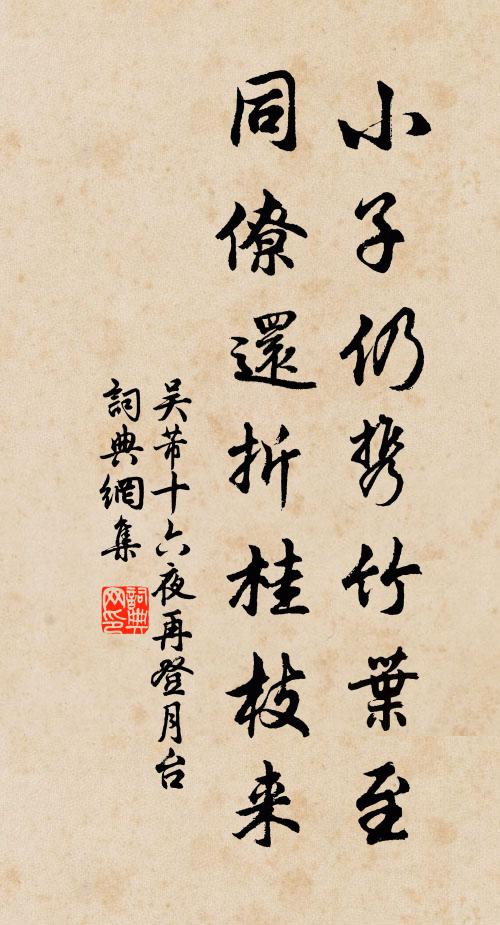 小子仍携竹葉至
同僚還折桂枝来
吴芾十六夜再登月台
詞典網集
詞典网印